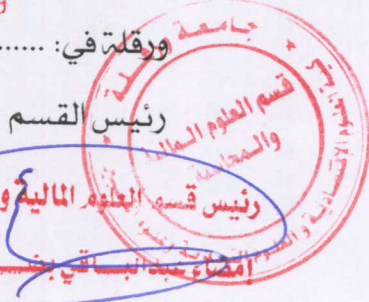 ورقلة في: ........
رئيس القسم
جامعة
قسم العلوم المالية
والمحاسبة
رئيس قسم العلوم المالية و
إمضاء عبد الباقي